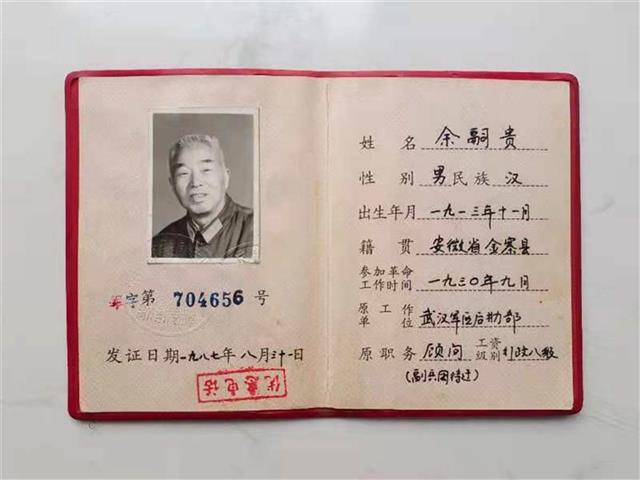 军字第 704656 号
发证日期一九八七年八月三十一日
优惠电话
姓名 余嗣贵
性别 男 民族 汉
出生年月 一九一三年十一月
籍贯 安徽省金寨县
参加革命工作时间 一九三〇年九月
原工作单位 武汉军区后勤部
原职务 顾问 工资级别 行政八级
(副兵团待遇)